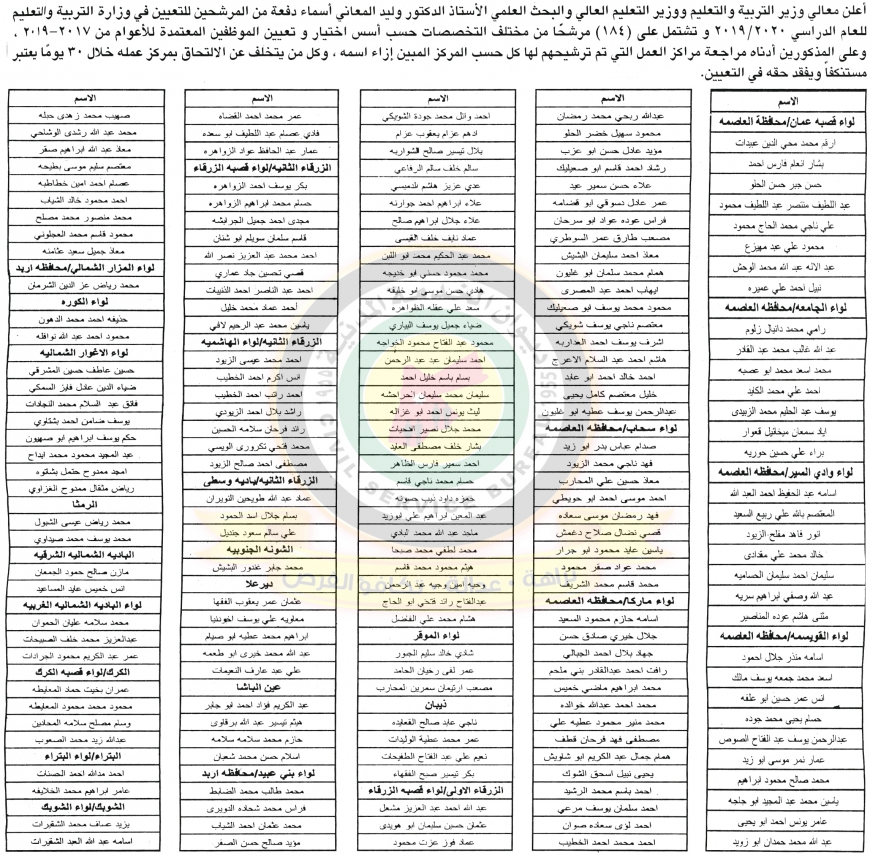 أعلن معالي وزير التربية والتعليم ووزير التعليم العالي والبحث العلمي الأستاذ الدكتور وليد المعاني أسماء دفعة من المرشحين للتعيين في وزارة التربية والتعليم
للعام الدراسي ٢٠١٩/٢٠٢٠ و تشتمل على (١٨٤) مرشحًا من مختلف التخصصات حسب أسس اختيار و تعيين الموظفين المعتمدة للأعوام من ٢٠١٧-٢٠١٩ ،
وعلى المذكورين أدناه مراجعة مراكز العمل التي تم ترشيحهم لها كل حسب المركز المبين إزاء اسمه ، وكل من يتخلف عن الالتحاق بمركز عمله خلال ٣٠ يومًا يعتبر
مستنكفاً ويفقد حقه في التعيين.
الاسم
لواء قصبه عمان/محافظة العاصمه
ارقم محمد محي الدين عبيدات
بشار انعام فارس احمد
حسن جبر حسن الحلو
عبد اللطيف منتصر عبد اللطيف محمود
علي ناجي محمد الحاج محمود
محمود علي عبد مهيزع
عبد الاله عبد الله محمد الوحش
نبيل احمد علي عميره
لواء الجامعه/محافظه العاصمه
رامي محمد دانيال زلوم
عبد الله غالب محمد عبد القادر
محمد اسعد محمد ابو عصبه
احمد علي محمد الكايد
يوسف عبد الحليم محمد الزبيدي
اياد سمعان ميخائيل قعوار
براء علي حسين حوريه
لواء وادي السير/محافظه العاصمه
اسامه عبد الحفيظ احمد العبد الله
المعتصم بالله علي ربيع السعيد
انور فاهد مفلح الزيود
خالد محمد علي مقدادى
سليمان احمد سليمان الصماميه
عبد الله وصفي ابراهيم سريه
مثنى هاشم عوده المناصير
لواء القويسمه/محافظه العاصمه
اسامه منذر جلال احمود
اسعد محمد جمعه يوسف مالك
انس عمر حسين ابو علفه
حسام يحيى محمد جوده
عبدالرحمن يوسف عبد الفتاح الصوص
عمار نمر موسى ابو زيد
محمد صالح محمود ابراهيم
ياسين محمد عبد المجيد ابو جاجه
عامر يونس احمد ابو يحيى
عبد الله محمد حمدان ابو زويد
الاسم
عبدالله ربحي محمد رمضان
محمود سهيل خضر الحلو
مؤيد عادل حسن ابو عزب
رشاد احمد قاسم ابو صعيليك
علاء حسن سمير عيد
عمر عادل دسوقي ابو قضامه
فراس عوده عواد ابو سرحان
مصعب طارق عمر السوطري
معاذ احمد سليمان البشيش
همام محمد سلمان ابو غليون
ايهاب احمد عبد المصرى
محمود محمد يوسف ابو صعيليك
معتصم ناجي يوسف شويكي
اشرف يوسف احمد العداربه
هاشم احمد عبد السلام الاعرج
احمد خالد احمد ابو عابد
خليل معتصم كامل يحيى
عبدالرحمن يوسف عطيه ابو غليون
لواء سحاب/محافظه العاصمه
صدام عباس بدر ابو زيد
فهد ناجي محمد الزيود
معاذ حسين علي المحارب
احمد موسى احمد ابو حويطي
فهد رمضان موسى سعاده
قصي نضال صلاح دغمش
ياسين عايد محمود ابو جرار
محمد عواد صقر محمود
محمد قاسم محمد الشريف
لواء ماركا/محافظه العاصمه
اسامه حازم محمود السعيد
جلال خيري صادق حسن
جهاد بلال احمد الجبالي
رافت احمد عبدالقادر بني ملحم
محمد ابراهيم ماضي خميس
محمد احمد عبدالله خوالده
محمد منير محمود عطيه علي
مصطفى فهد فرحان قطف
همام جمال عبد الكريم ابو شاويش
يحيى نبيل اسحق الشوك
احمد باسم محمد الرشيد
احمد سلمان يوسف مرعي
احمد لؤى سعاده صوان
احمد محمد احمد الخطيب
الاسم
احمد وائل محمد جودة الشويكي
ادهم عزام يعقوب عزام
بلال تيسير صالح الشواربه
سالم خلف سالم الرفاعي
عدي عزيز هاشم بلدميسي
علاء ابراهيم احمد جوارنه
علاء جلال ابراهيم صالح
عماد نايف خلف القيسى
محمد عبد الحكيم محمد ابو اللبن
محمد محمود حسني ابو خديجه
هادي حسن موسى ابو خليفه
سعد علي عقله الظواهره
ضياء جميل يوسف البياري
محمود عبد الفتاح محمود الخواجه
احمد سليمان عبد عبد الرحمن
بسام باسم خليل احمد
سليمان محمد سليمان الحراحشه
ليث يونس احمد ابو غزاله
محمد جلال نصير الحيات
بشار خلف مصطفى العابد
احمد سمير فارس الظاهر
حسام محمد ناجي قاسم
حمزه داود ذيب حسونه
عبد المعين ابراهيم علي ابوزيد
ماجد عبد الله محمد البادي
محمد لطفي محمد صبحا
هيثم محمود محمد قاسم
وحيه امين وحيه عبد الرحمن
عبدالفتاح رائد فتحي ابو الحاج
هشام محمد علي الفاضل
لواء الموقر
شادي خالد سليم الجبور
عمر لفى رخيان الحامد
مصعب ارتيمان سمرين المحارب
ذيبان
ناجي عابد صالح القعايده
عمر محمد عطية الوليدات
نعيم علي عبد الفتاح الطفيحات
بكر تيسير صبح الفقهاء
الزرقاء الاولى/لواء قصبه الزرقاء
عبد الله احمد عبد العزيز مشعل
عثمان حسين سليمان ابو هويدى
عماد فوز عزت محمود
الاسم
عمر محمد احمد القضاه
فادي عصام عبد اللطيف ابو سعده
عمار عبد الحافظ عواد الزواهره
الزرقاء الثانيه/لواء قصبه الزرقاء
بكر يوسف احمد الزواهره
حسام محمد ابراهيم الزواهره
مجدى احمد جميل الجرابشه
قاسم سلمان سويلم ابو شنان
احمد محمد عبد العزيز نصر الله
قصي تحسين جاد عماري
احمد عبد الناصر احمد الذنيبات
أحمد عماد محمد خليل
ياسين محمد عبد الرحيم لافي
الزرقاء الثانيه/لواء الهاشميه
احمد محمد عيسى الزيود
انس اكرم احمد الخطيب
احمد راتب احمد الخطيب
راشد بلال احمد الزيودي
رائد فرحان سلامه الحسين
محمد فتحي تكروري الويسي
مصطفى احمد صالح الزيود
الزرقاء الثانيه/باديه وسطى
عماد عبد الله طويحين النويران
بسام جلال اسد الحمود
علي سالم سعود جنديل
الشونه الجنوبيه
محمد جابر غندور البشيش
ديرعلا
عثمان عمر يعقوب الفقها
معاويه علي يوسف اخوذنيا
ابراهيم محمد عطيه ابو صيام
عبد الله محمد خيرى ابو طعمه
علي عبد عارف النعيمات
عين الباشا
عبد الكريم فؤاد احمد ابو جابر
هيثم تيسير عبد الله برقاوى
حازم محمد سلامه سلامه
اسلام حسن محمد شعبان
لواء بني عبيد/محافظه اربد
محمد طالب محمد الضابط
فراس محمد شحاده الدويرى
محمد عثمان احمد الشياب
مؤيد صالح حسن الصقر
الاسم
صهيب محمد زهدى حبله
محمد عبد الله رشدى الوشاحي
معاذ عبد الله ابراهيم صقر
معتصم سليم موسى بطيحه
عصام احمد امين خطاطبه
احمد محمود خالد الشياب
محمد منصور محمد مصلح
محمود قاسم محمد العجلوني
معاذ جميل سعيد عثامنه
لواء المزار الشمالي/محافظه اربد
محمد رياض عز الدين الشرمان
لواء الكوره
حذيفه احمد محمد الدهون
محمود احمد عبد الله نوافله
لواء الاغوار الشماليه
حسين عاطف حسين المشرقي
ضياء الدين عادل فايز السمكي
فائق عبد السلام محمد النجادات
يوسف ضامن احمد بشتاوي
حكم يوسف ابراهيم ابو صهيون
عبد المجيد محمود محمد ابداح
امجد ممدوح حتمل بشاتوه
رياض مثقال ممدوح الغزاوي
الرمثا
محمد رياض عيسى الشبول
محمد يوسف محمد صيداوي
الباديه الشماليه الشرقيه
مازن صالح حمود الجمعان
انس خميس عايد المساعيد
لواء الباديه الشماليه الغربيه
محمد سلامه عليان الحموان
عبدالعزيز محمد خلف الصبيحات
عمر عبد الكريم محمود الجرادات
الكرك/لواء قصبه الكرك
عمران بخيت حماد المعايطه
محمود محمد محمود المعايطه
وسام مصلح سلامه المحادين
عبدالله زيد محمد الصعوب
البتراء/لواء البتراء
احمد مدالله احمد الحسنات
عامر ابراهيم محمد الخلايفه
الشوبك/لواء الشوبك
يزيد عساف محمد الشقيرات
اسامه عبد الله العبد الشقيرات
ديوان الخدمة المدنية
CIVIL SERVICE BUREAU
1955
١٩٥٥